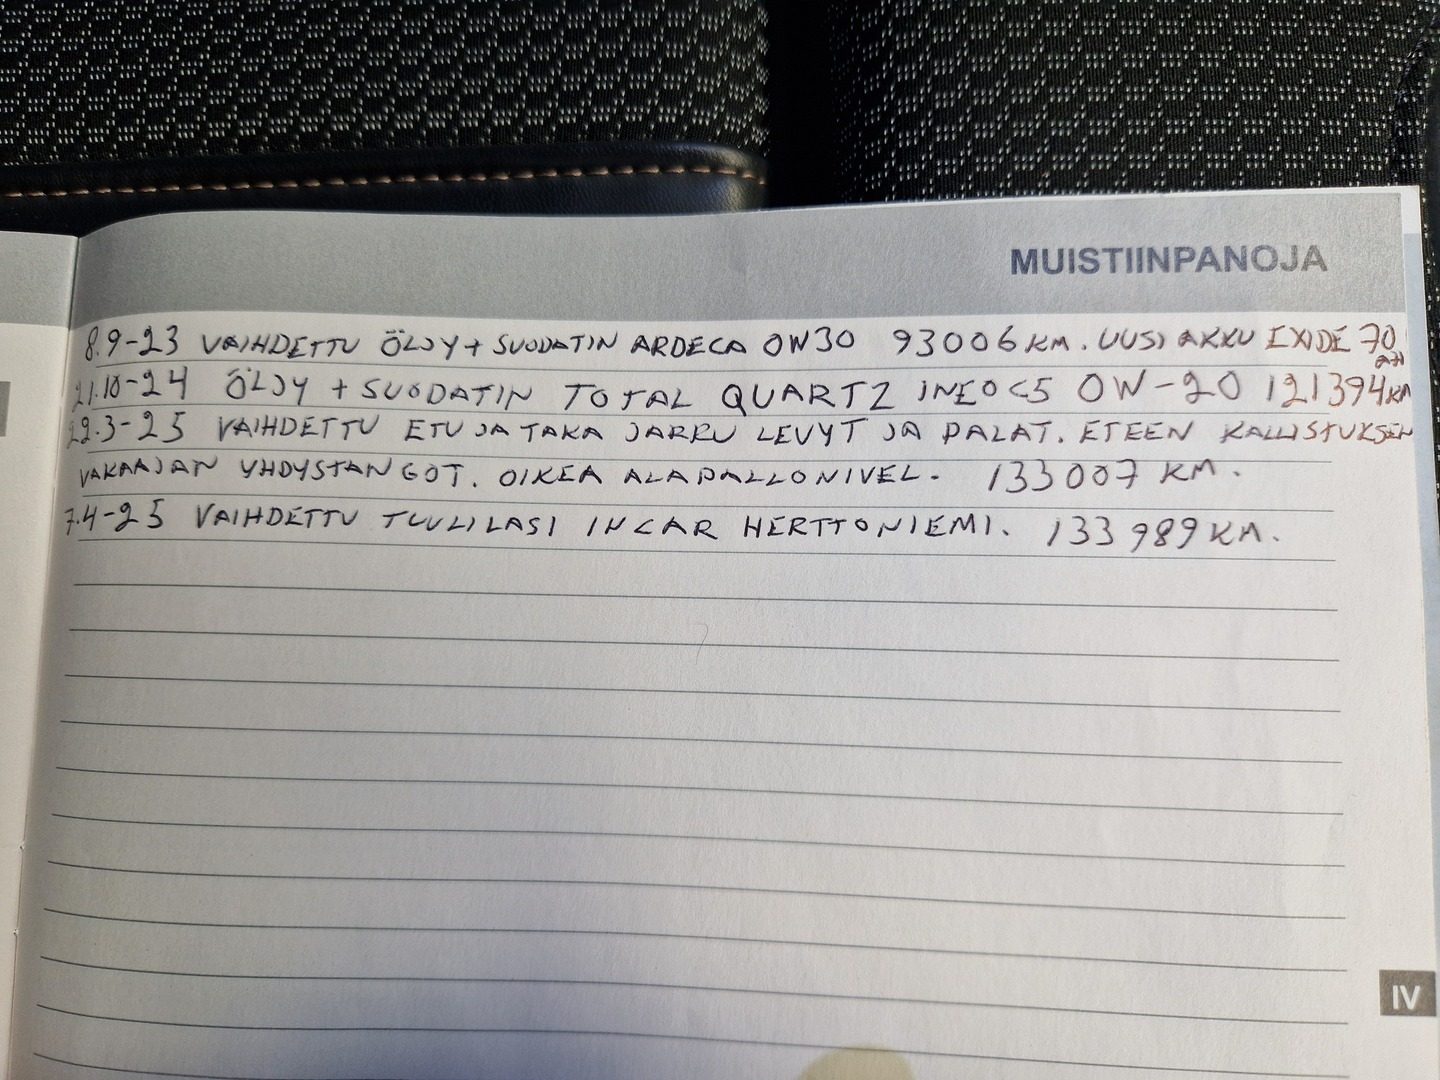 MUISTIINPANOJA
8.9-23 VAIHDETTU ÖLJY + SUODATIN ARDECA 0W30 93006 KM. UUSI AKKU EXIDE 70
21.10-24 ÖLJY + SUODATIN TOTAL QUARTZ INEO C5 0W-20 121394 KM
22.3-25 VAIHDETTU ETU JA TAKA JARRU LEVYT JA PALAT. ETEEN KALLISTUKSEN
VAKAAJAN YHDYSTANGOT. OIKEA ALAPALLONIVEL. 133007 KM.
7.4-25 VAIHDETTU TUULILASI INCAR HERTTONIEMI. 133989 KM.
IV